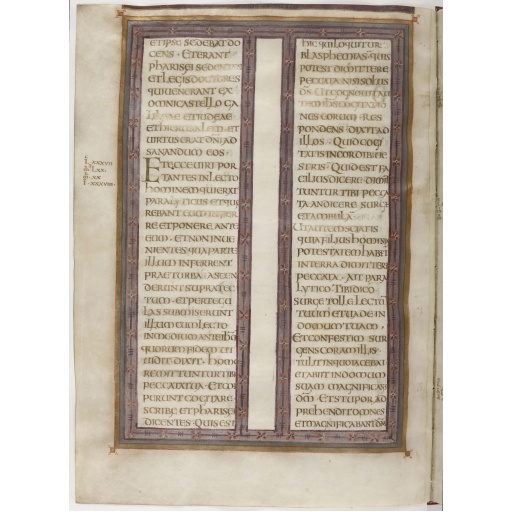 ET IPSE SEDEBAT DO
CENS · ET ERANT
PHARISEI SEDENTES
ET LEGIS DOCTORES
QUI VENERANT EX
OMNI CASTELLO GA
LILEAE ET IUDEAE
ET HIERUSALEM · ET
VIRTUS ERAT DNI AD
SANANDUM EOS ·
ET ECCE VIRI POR
TANTES IN LECTO
HOMINEM QUI ERAT
PARALYTICUS ET QUE
REBANT EUM INFERRE
RE ET PONERE ANTE
EUM · ET NON INVE
NIENTES QUA PARTE
ILLUM INFERRENT
PRAE TURBA · ASCEN
DERUNT SUPRA TEC
TUM · ET PER TEGU
LAS SUBMISERUNT
ILLUM CUM LECTO
IN MEDIUM ANTE IHM
QUORUM FIDEM UT
VIDIT · DIXIT · HOMO
REMITTUNTUR TIBI
PECCATA TUA · ET COE
PERUNT COGITARE
SCRIBE ET PHARISEI
DICENTES · QUIS EST
HIC QUI LOQUITUR
BLASPHEMIAS · QUIS
POTEST DIMITTERE
PECCATA NISI SOLUS
DS · UT COGNOVIT AU
TEM IHS COGITATIO
NES EORUM · RES
PONDENS DIXIT AD
ILLOS · QUID COGI
TATIS IN CORDIBUS VE
STRIS · QUID EST FA
CILIUS DICERE DIMIT
TUNTUR TIBI PECCA
TA AN DICERE SURGE
ET AMBULA
UT AUTEM SCIATIS
QUIA FILIUS HOMINIS
POTESTATEM HABET
IN TERRA DIMITTERE
PECCATA · AIT PARA
LYTICO · TIBI DICO
SURGE TOLLE LECTUM
TUUM ET VADE IN
DOMUM TUAM ·
ET CONFESTIM SUR
GENS CORAM ILLIS
TULIT IN QUO IACEBAT
ET ABIIT IN DOMUM
SUAM MAGNIFICANS
DM · ET STUPOR AD
PREHENDIT OMNES
ET MAGNIFICABANT DM
XXXVII
XX
XXXVIII